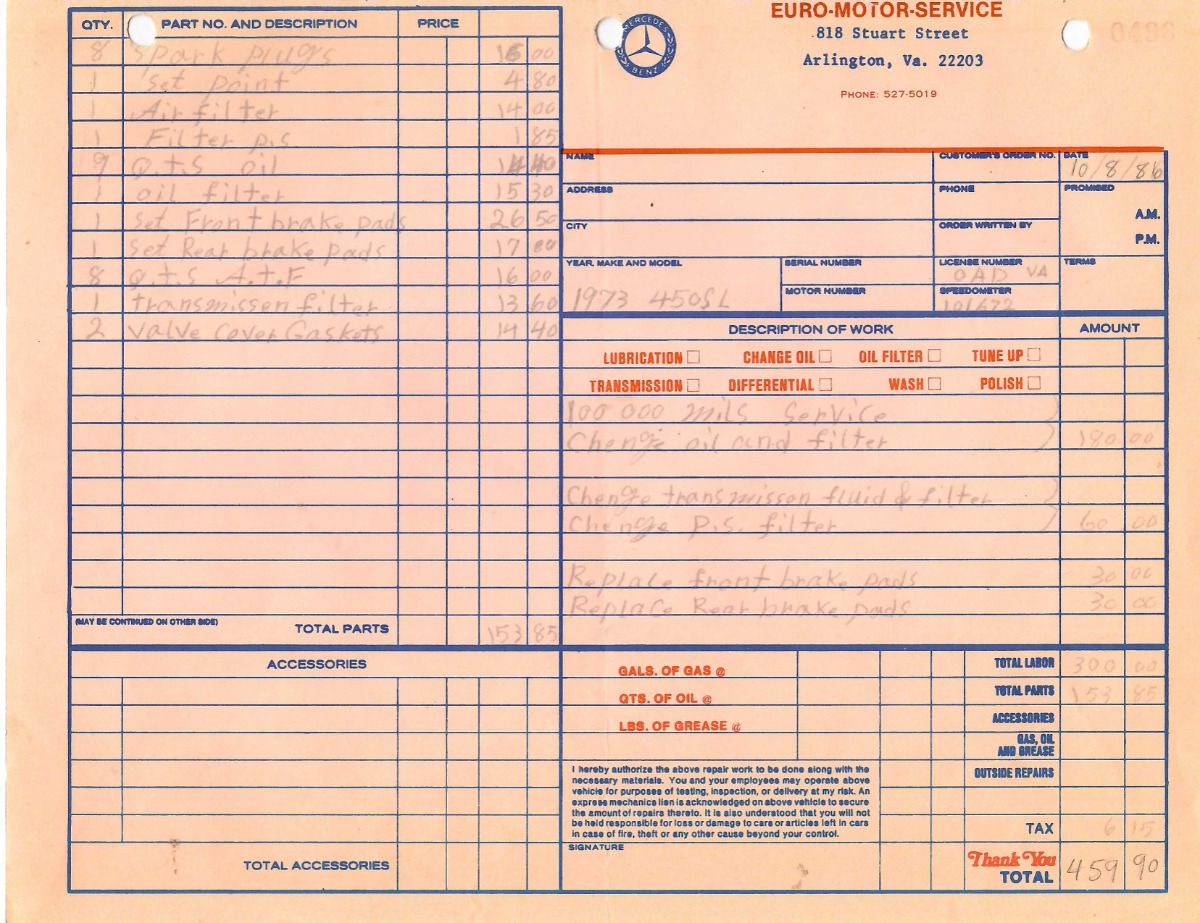 QTY. PART NO. AND DESCRIPTION PRICE
8 Spark plugs 16 00
1 Set point 4 80
1 Air filter 14 00
1 Filter p.s. 1 85
9 Q.t.s oil 14 40
1 oil filter 15 30
1 Set Front brake pads 26 50
1 Set Rear brake pads 17 00
8 Q.t.s A.T.F 16 00
1 transmissen filter 13 60
2 valve cover Gaskets 14 40
(MAY BE CONTINUED ON OTHER SIDE) TOTAL PARTS 153 85
ACCESSORIES
TOTAL ACCESSORIES
MERCEDES
BENZ
EURO-MOTOR-SERVICE
818 Stuart Street
Arlington, Va. 22203
PHONE: 527-5019
0498
NAME CUSTOMER'S ORDER NO. DATE
10/8/86
ADDRESS PHONE PROMISED
A.M.
CITY ORDER WRITTEN BY
P.M.
YEAR, MAKE AND MODEL SERIAL NUMBER LICENSE NUMBER TERMS
OAD VA
1973 450SL MOTOR NUMBER SPEEDOMETER
101672
DESCRIPTION OF WORK AMOUNT
LUBRICATION CHANGE OIL OIL FILTER TUNE UP
TRANSMISSION DIFFERENTIAL WASH POLISH
100 000 mils Service
Chenge oil and filter 180 00
Chenge transmissen fluid & filter
Chenge p.s. filter 60 00
Replace front brake pads 30 00
Replace Rear brake pads 30 00
GALS. OF GAS @ TOTAL LABOR 300 00
QTS. OF OIL @ TOTAL PARTS 153 85
LBS. OF GREASE @ ACCESSORIES
GAS, OIL
AND GREASE
OUTSIDE REPAIRS
I hereby authorize the above repair work to be done along with the
necessary materials. You and your employees may operate above
vehicle for purposes of testing, inspection, or delivery at my risk. An
express mechanics lien is acknowledged on above vehicle to secure
the amount of repairs thereto. It is also understood that you will not
be held responsible for loss or damage to cars or articles left in cars
in case of fire, theft or any other cause beyond your control.
TAX 6 15
SIGNATURE
Thank You
TOTAL 459 90